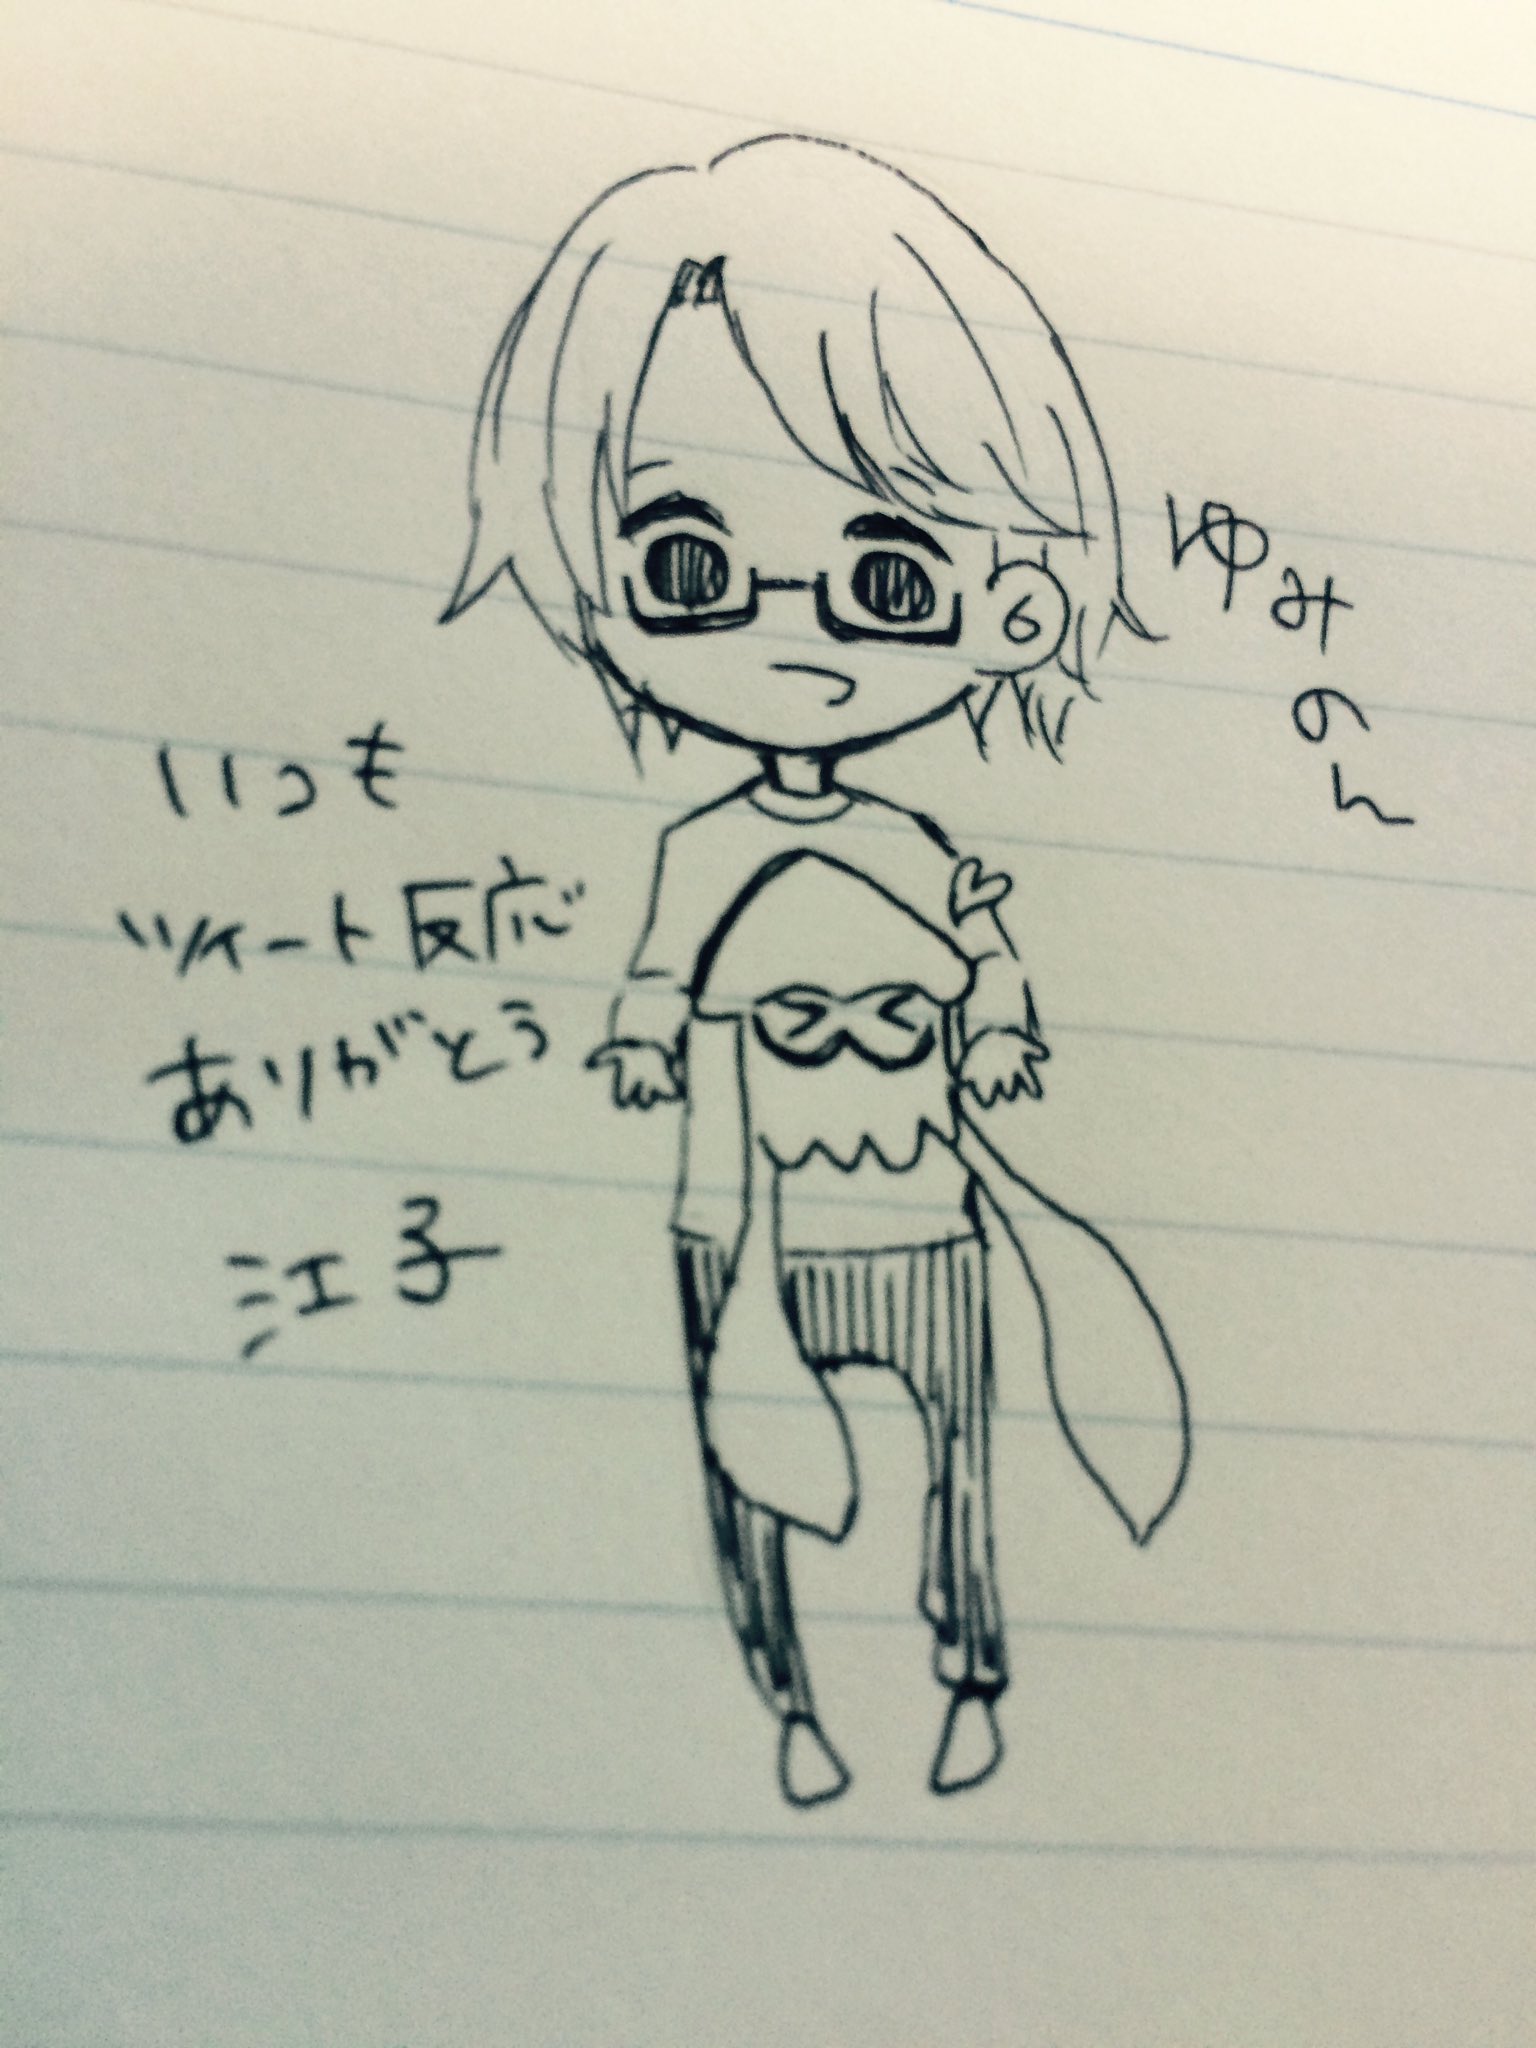 ゆみのん
いつも
ツイート反応
ありがとう
江子